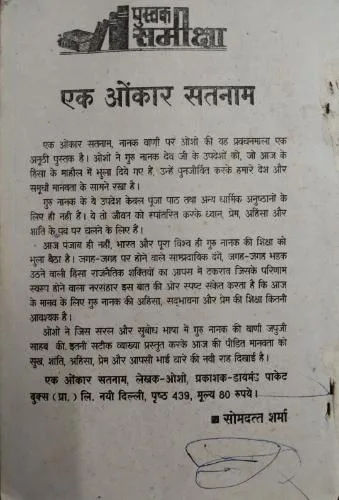 पुस्तक
समीक्षा
एक ओंकार सतनाम
एक ओंकार सतनाम, नानक वाणी पर ओशो की यह प्रवचनमाला एक
अनूठी पुस्तक है। ओशो ने गुरु नानक देव जी के उपदेशों को, जो आज के
हिंसा के माहौल में भुला दिये गए हैं, उन्हें पुनर्जीवित करके हमारे देश और
समूची मानवता के सामने रखा है।
गुरु नानक के ये उपदेश केवल पूजा पाठ तथा अन्य धार्मिक अनुष्ठानों के
लिए ही नहीं हैं। ये तो जीवन को रूपांतरित करके ध्यान, प्रेम, अहिंसा और
शांति के पथ पर चलने के लिए हैं।
आज पंजाब ही नहीं, भारत और पूरा विश्व ही गुरु नानक की शिक्षा को
भुला बैठा है। जगह-जगह पर होने वाले साम्प्रदायिक दंगे, जगह-जगह भड़क
उठने वाली हिंसा राजनैतिक शक्तियों का आपस में टकराव जिसके परिणाम
स्वरूप होने वाला नरसंहार इस बात की ओर स्पष्ट संकेत करता है कि आज
के मानव के लिए गुरु नानक की अहिंसा, सद्भावना और प्रेम की शिक्षा कितनी
आवश्यक है।
ओशो ने जिस सरल और सुबोध भाषा में गुरु नानक की वाणी जपुजी
साहब की इतनी सटीक व्याख्या प्रस्तुत करके आज की पीड़ित मानवता को
सुख, शांति, अहिंसा, प्रेम और आपसी भाई चारे की नयी राह दिखाई है।
एक ओंकार सतनाम, लेखक-ओशो, प्रकाशक-डायमंड पाकेट
बुक्स (प्रा.) लि. नयी दिल्ली, पृष्ठ 439, मूल्य 80 रुपये।
■ सोमदत्त शर्मा